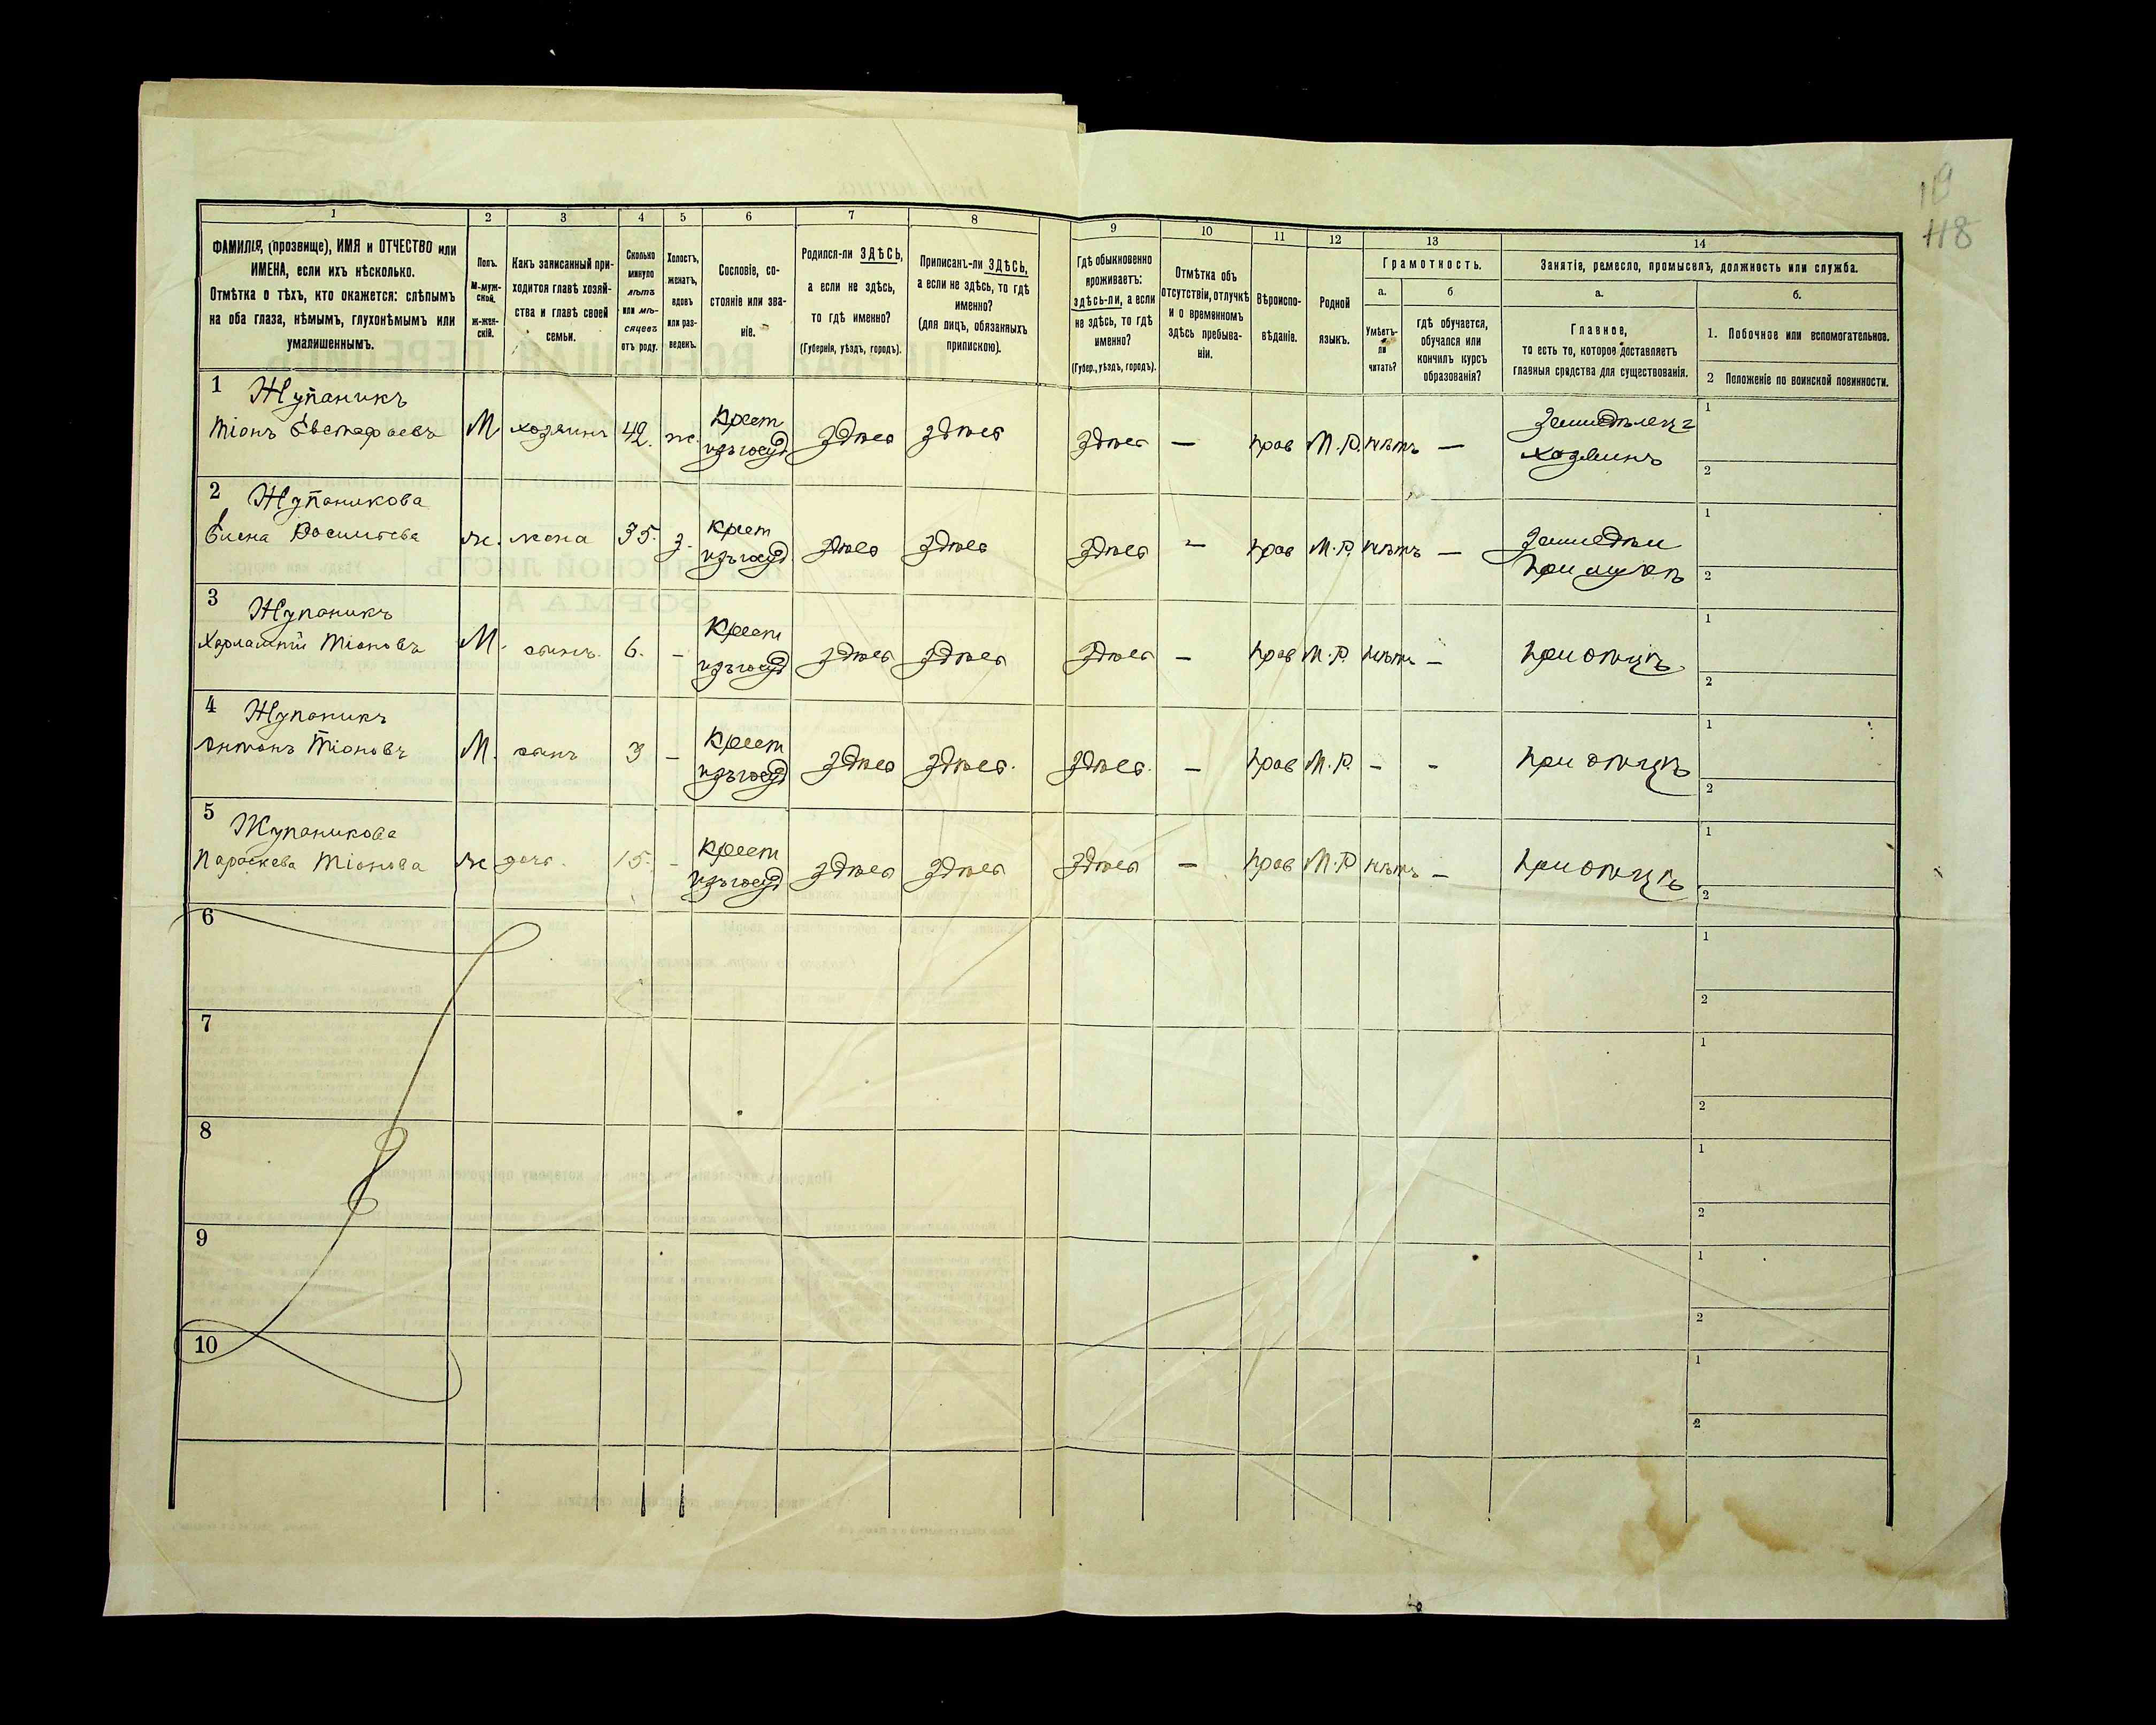 19
118
1 2 3 4 5 6 7 8 9 10 11 12 13 14
ФАМИЛІЯ, (прозвище), ИМЯ и ОТЧЕСТВО или
ИМЕНА, если ихъ нѣсколько.
Отмѣтка о тѣхъ, кто окажется: слѣпымъ
на оба глаза, нѣмымъ, глухонѣмымъ или
умалишеннымъ.
Полъ.
М-муж-
ской.
ж-жен-
скій.
Какъ записанный при-
ходится главѣ хозяй-
ства и главѣ своей
семьи.
Сколько
минуло
лѣтъ
или мѣ-
сяцевъ
отъ роду.
Холостъ,
женатъ,
вдовъ
или раз-
веденъ.
Сословіе, со-
стояніе или зва-
ніе.
Родился-ли ЗДѢСЬ,
а если не здѣсь,
то гдѣ именно?
(Губернія, уѣздъ, городъ).
Приписанъ-ли ЗДѢСЬ,
а если не здѣсь, то гдѣ
именно?
(для лицъ, обязанныхъ
припискою).
Гдѣ обыкновенно
проживаетъ:
здѣсь-ли, а если
не здѣсь, то гдѣ
именно?
(Губер., уѣздъ, городъ).
Отмѣтка объ
отсутствіи, отлучкѣ
и о временномъ
здѣсь пребыва-
ніи.
Вѣроиспо-
вѣданіе.
Родной
языкъ.
Грамотность.
а.
Умѣетъ-
ли
читать?
б
гдѣ обучается,
обучался или
кончилъ курсъ
образованія?
Занятія, ремесло, промыселъ, должность или служба.
а.
Главное,
то есть то, которое доставляетъ
главныя средства для существованія.
б.
1. Побочное или вспомогательное.
2 Положеніе по воинской повинности.
1 Жупаникъ
Тіонъ Евстафіевъ М хозяинъ 42. ж. Крест изъ госуд здѣсь здѣсь здѣсь — прав М.Р. нѣтъ — Земледѣлецъ хозяинъ 1 2
2 Жупаникова
Елена Васильева ж. жена 35. з. Крест изъ госуд здѣсь здѣсь здѣсь — прав М.Р. нѣтъ — Земледѣл при мужѣ 1 2
3 Жупаникъ
Харлампій Тіоновъ М. сынъ 6. — Крест изъ госуд здѣсь здѣсь здѣсь — прав М.Р. нѣтъ — при отцѣ 1 2
4 Жупаникъ
Антонъ Тіоновъ М. сынъ 3 — Крест изъ госуд здѣсь здѣсь. здѣсь. — прав М.Р. — - при отцѣ 1 2
5 Жупаникова
Параскева Тіонова ж дочь. 15. — Крест изъ госуд здѣсь здѣсь здѣсь — прав М.Р нѣтъ — при отцѣ 1 2
6 1 2
7 1 2
8 1 2
9 1 2
10 1 2